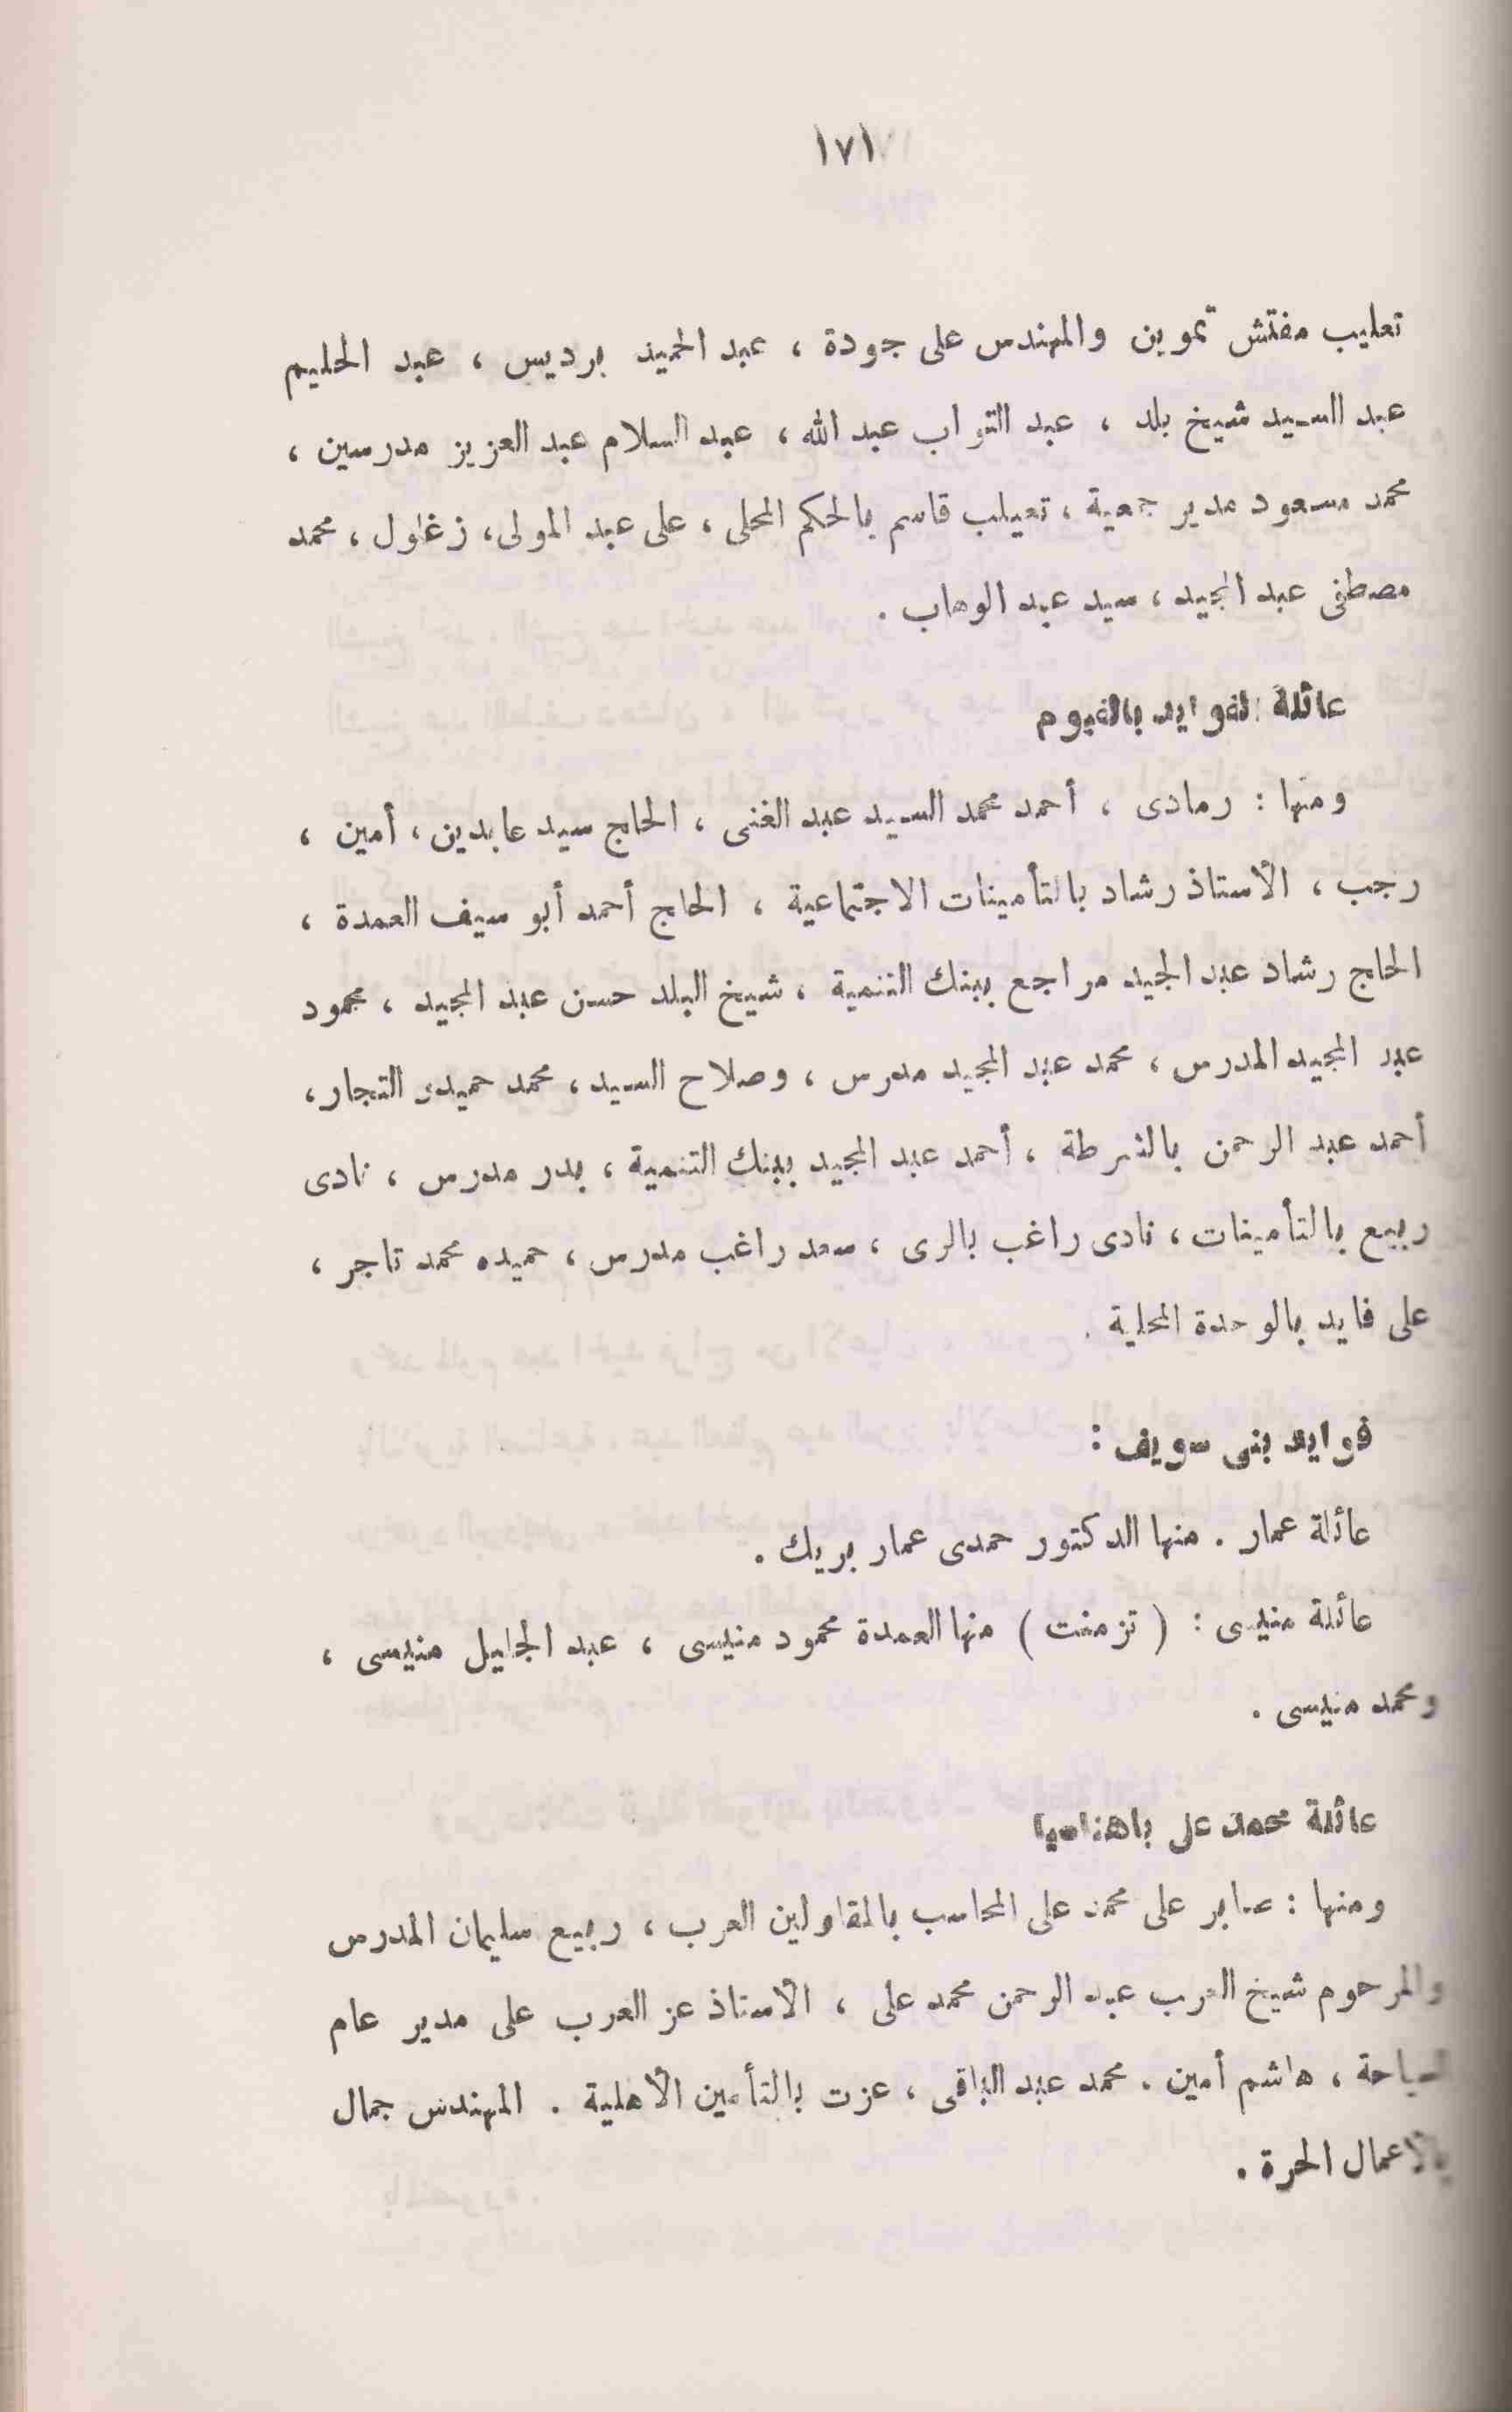 ١٧١
تعليب مفتش تموين والمهندس على جودة ، عبد الحميد برديس ، عبد الحليم
عبد السيد شيخ بلد ، عبد التواب عبد الله ، عبد السلام عبد العزيز مدرسين ،
محمد مسعود مدير جمعية ، تعيلب قاسم بالحكم المحلى ، على عبد المولى، زغلول ، محمد
مصطفى عبد المجيد ، سيد عبد الوهاب .
عائلة الفوايد بالفيوم
ومنها : رمادى ، أحمد محمد السيد عبد الغنى ، الحاج سيد عابدين ، أمين ،
رجب ، الأستاذ رشاد بالتأمينات الاجتماعية ، الحاج أحمد أبو سيف العمدة ،
الحاج رشاد عبد المجيد مراجع ببنك التنمية ، شيخ البلد حسن عبد المجيد ، محمود
عبد المجيد المدرس ، محمد عبد المجيد مدرس ، وصلاح السيد ، محمد حميدى التجار،
أحمد عبد الرحمن بالشرطة ، أحمد عبد المجيد ببنك التنمية ، بدر مدرس ، نادى
ربيع بالتأمينات ، نادى راغب بالرى ، سعد راغب مدرس ، حميده محمد تاجر ،
على فايد بالوحدة المحلية .
فوايد بنى سويف :
عائلة عمار . منها الدكتور حمدى عمار بريك .
عائلة منيسى : ( تزمنت ) منها العمدة محمود منيسى ، عبد الجليل منيسى ،
ومحمد منيسى .
عائلة محمد على باهناسيا
ومنها : صابر على محمد على المحاسب بالمقاولين العرب ، ربيع سليمان المدرس
والمرحوم شيخ العرب عبد الرحمن محمد على ، الأستاذ عز العرب على مدير عام
السياحة ، هاشم أمين . محمد عبد الباقى ، عزت بالتأمين الأهلية . المهندس جمال
بالاعمال الحرة .